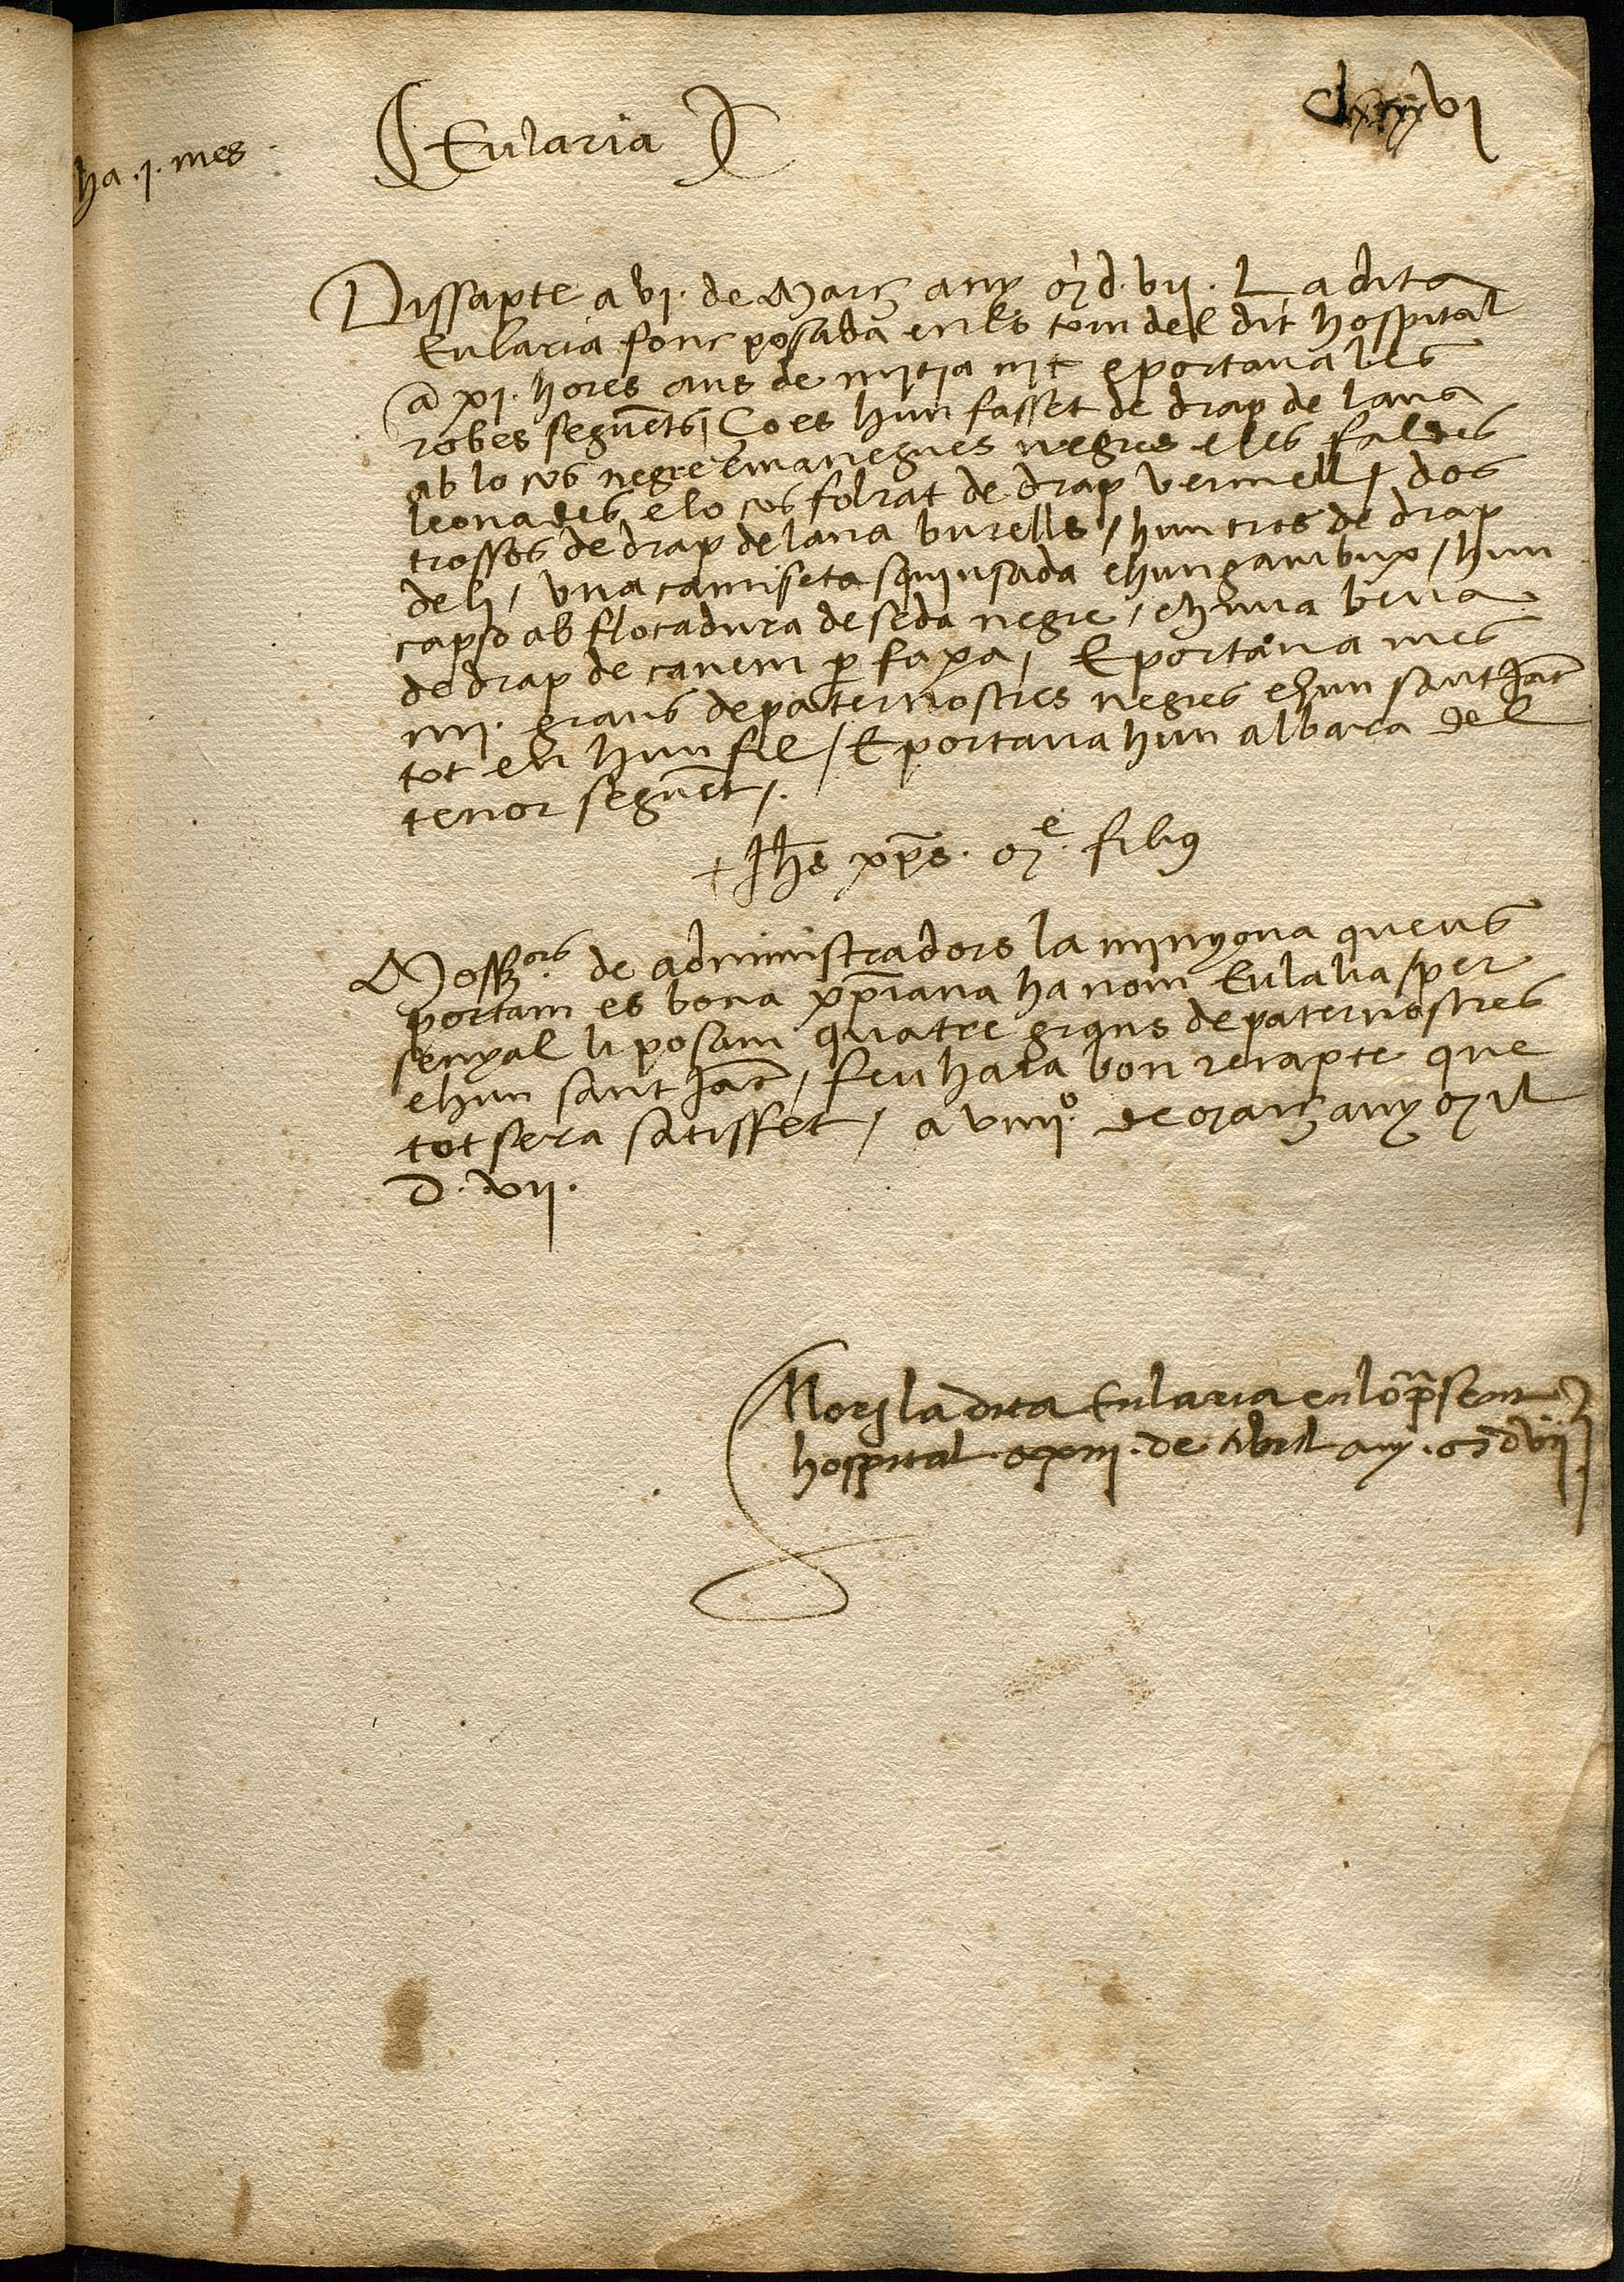 clxxxvi
Eularia
ha .j. mes
Dissapte a vi. de Març any Md.vii. La dita
Eularia fonc posada en lo torn del dit hospital
a xi. hores ans de mitja nit e portava les
robes seguẽts / Ço es hun fasset de drap de lana
ab lo cos negre e manegues negres e les faldes
leonades e lo cos folrat de drap vermell / dos
trossos de drap de lana burells / hun tros de drap
de li / una camiseta squinsada e hun gambux / hun
capso ab flocadura de seda negre / e huna bena
de drap de canem p faxa / E portava mes
iiii. grans de paternostres negres e hun sant Jac̃
tot en hun fil / E portava hun albara del
tenor seguẽt /.
+ Jhs xp̃s. Mᵉ. filiꝰ
Mossʳˢ. de administradors la minyona queus
portam es bona xp̃iana ha nom Eulalia / per
senyal li posam quatre grans de paternostres
e hun sant Jac̃ / feu hara bon recapte que
tot sera satisffet / a viiiiº. de Març any Mil
D. vii.
Mori la dita Eularia en lo p̃sent
hospital a xiii. de Abril any. Mdvii